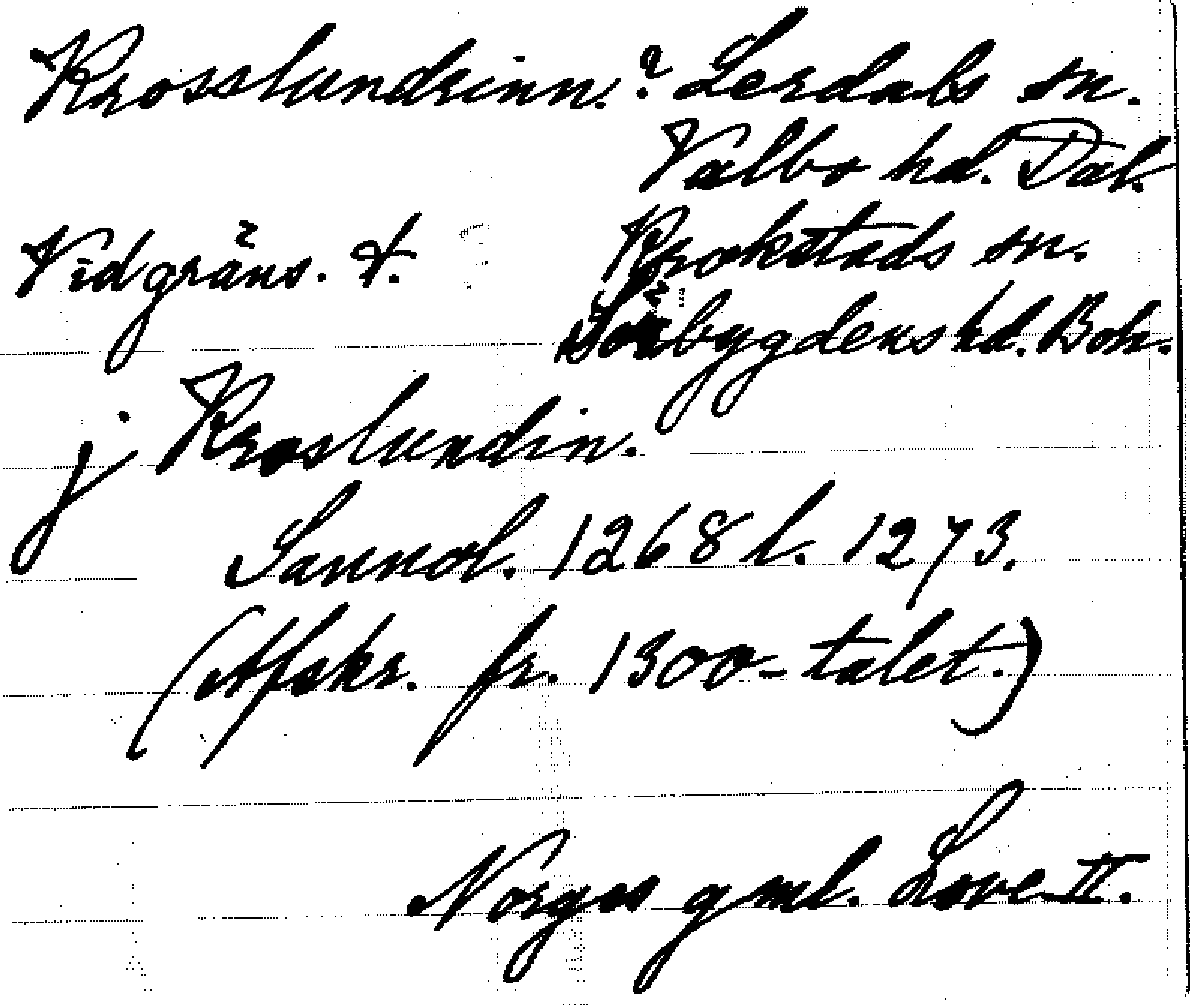 Krosslundrinn.? Lerdals sn.
Valbo hd. Dal.
Vid gräns. t. Krokstads sn.
Sörbygdens hd. Boh.
j Kroslundin.
Sannol. 1268 l. 1273.
(Afskr. fr. 1300-talet.)
Norges gml. Love II.